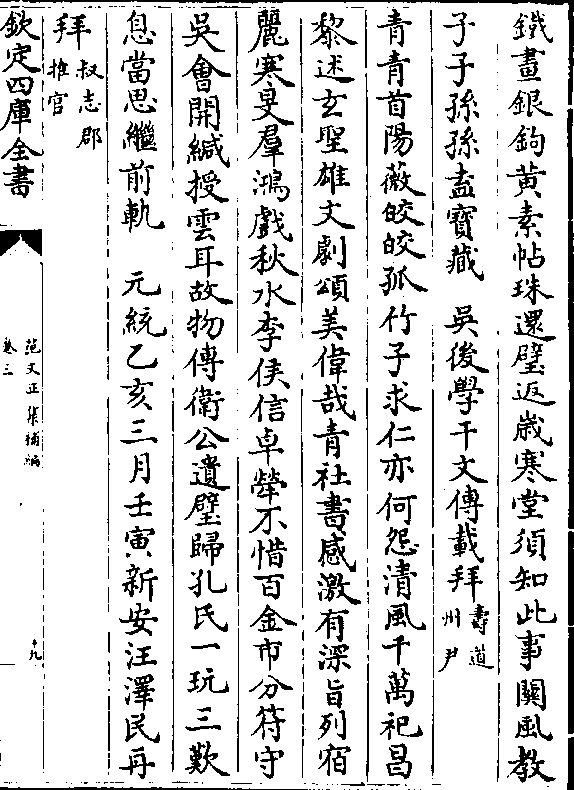 鐵畫銀鉤黃素帖珠還璧返嵗寒堂須知此事關風教
子子孫孫盍寶藏　吳後學干文傳載拜壽道州尹
青青首陽薇皎皎孤竹子求仁亦何怨清風千萬祀昌
黎述玄聖雄文劇頌美偉哉青社書感激有深旨列宿
麗寒旻羣鴻戲秋水李侯信卓犖不惜百金市分符守
吳會開緘授雲耳故物傳衛公遺璧歸孔氏一玩三歎
息當思繼前軌　元統乙亥三月壬寅新安汪澤民再
拜叔志郡推官
欽定四庫全書
范文正集補編
卷三
十九